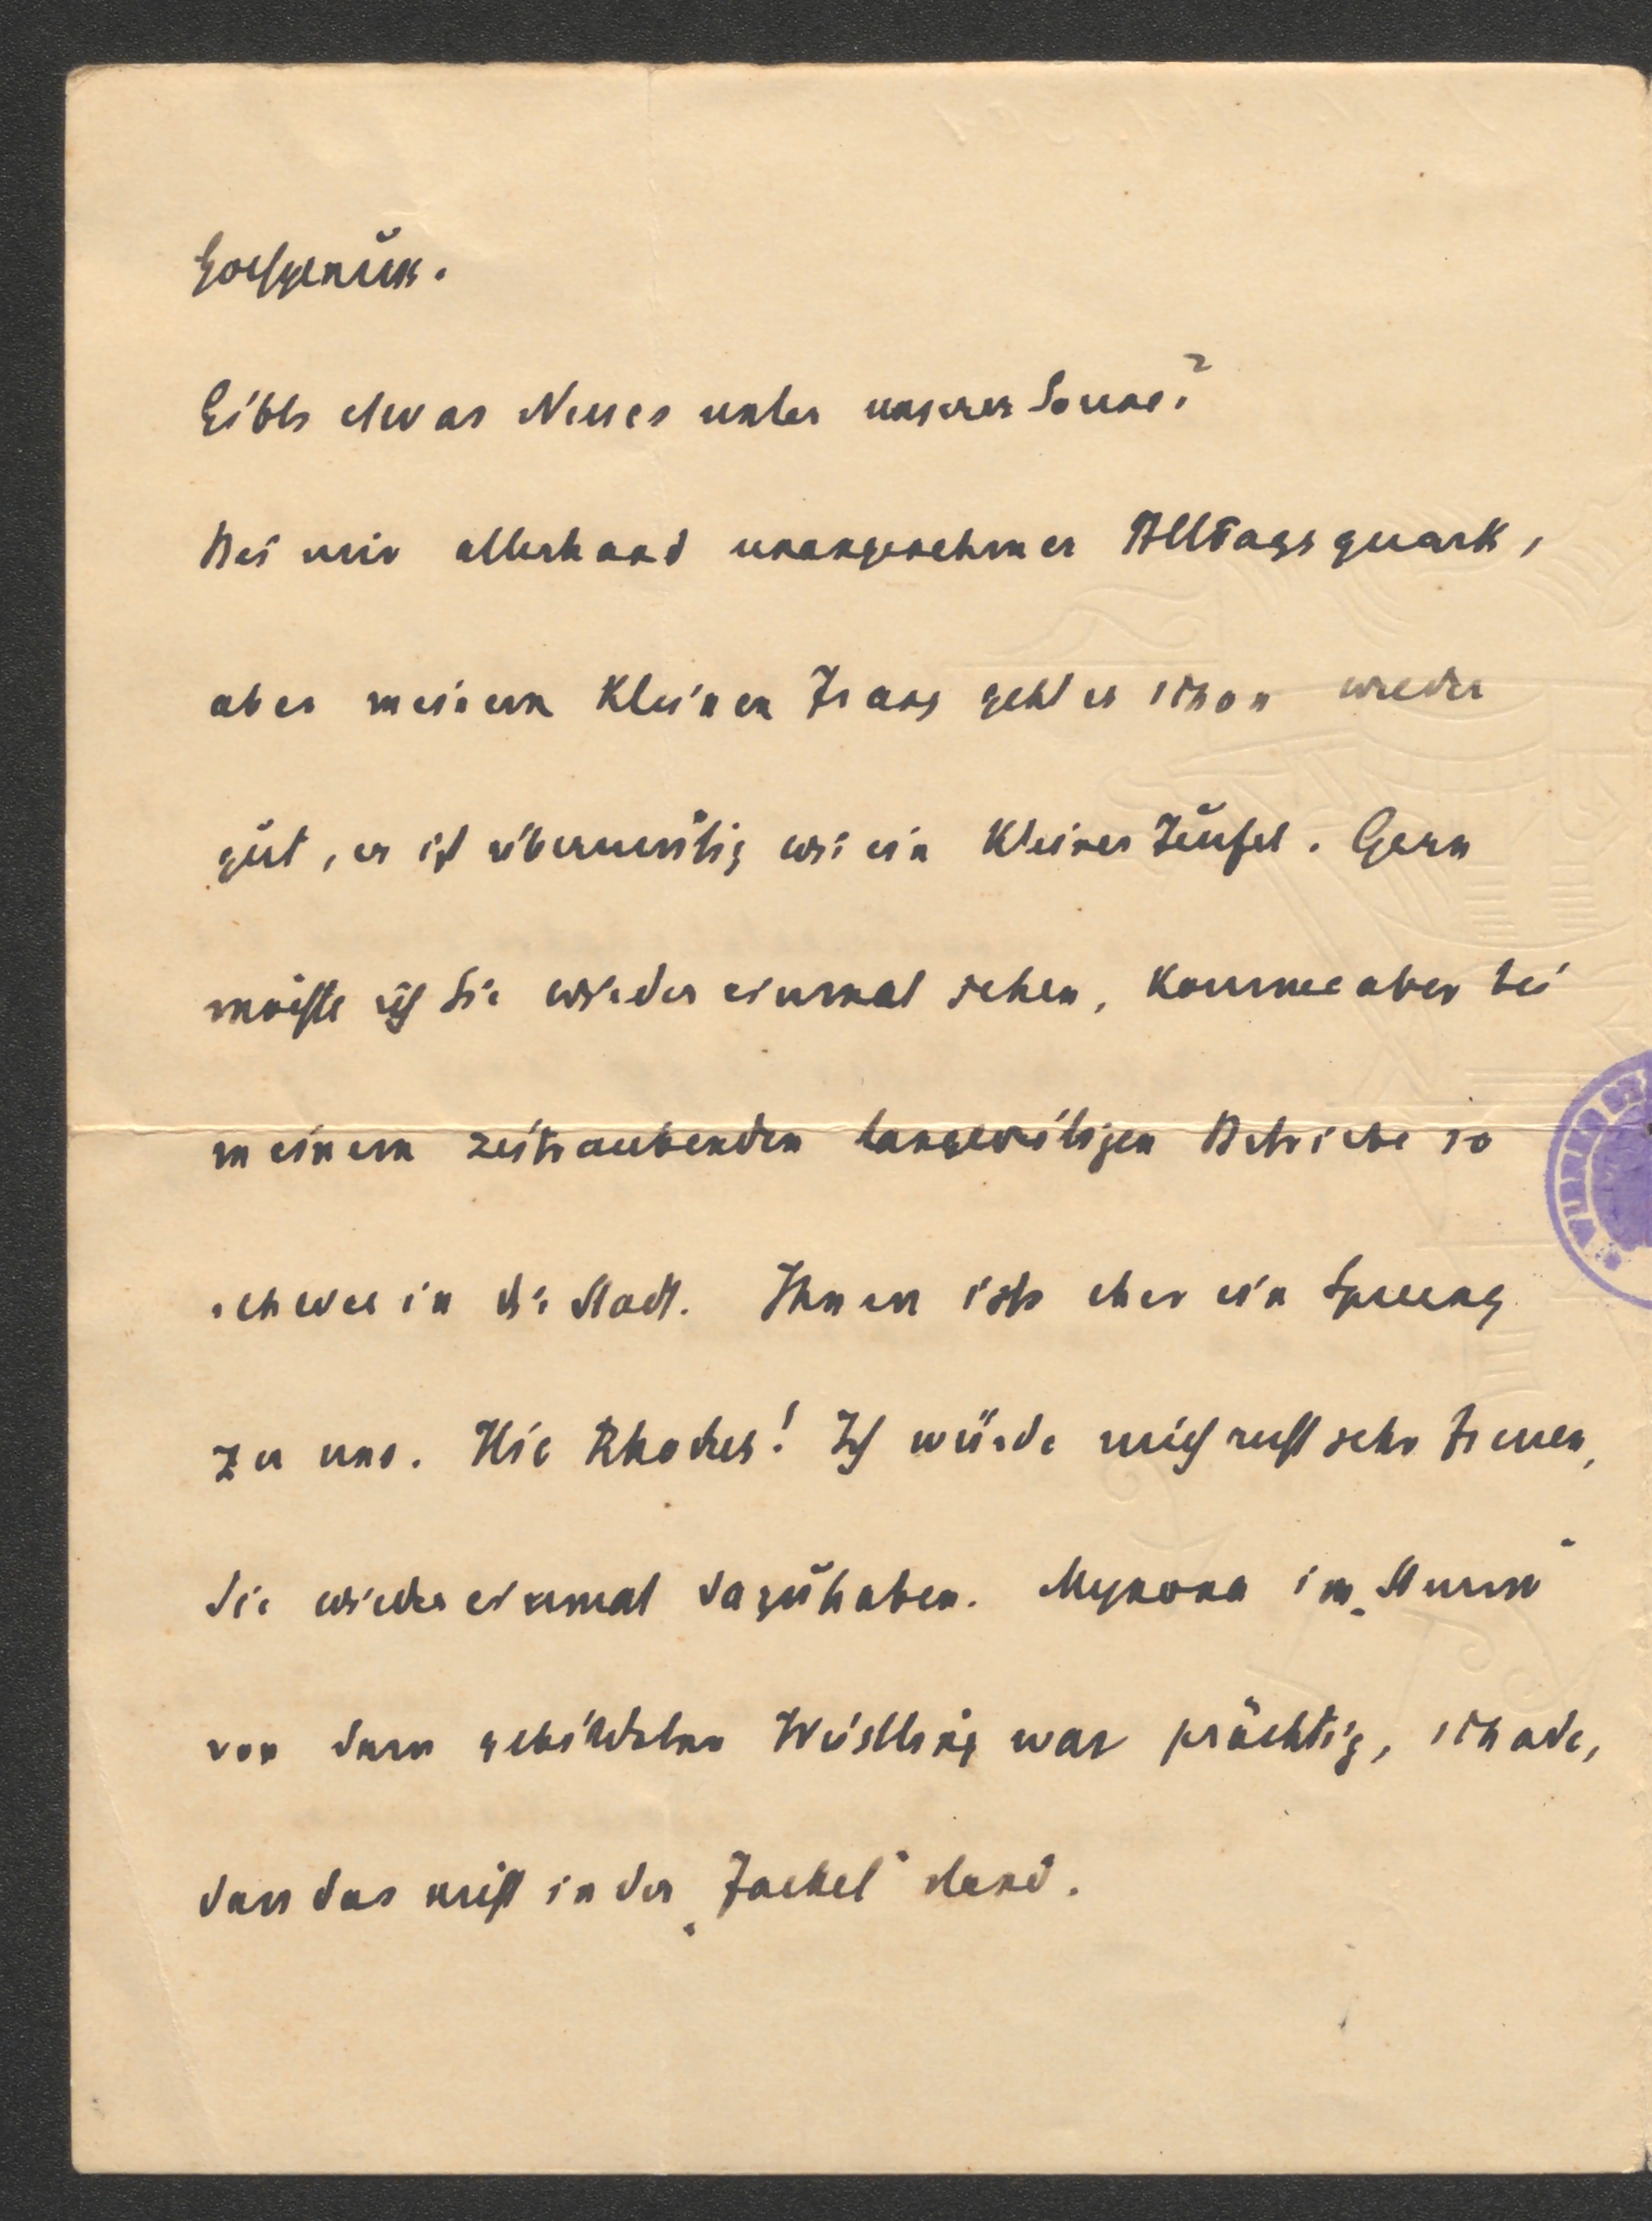 Hochgenuss.
Gibts etwas Neues unter unserer Sonne?
Bei mir allerhand unangenehmer Alltagsquark,
aber meinem kleinen Franz geht es schon wieder
gut, er ist übermütig wie ein kleiner Teufel. Gern
möchte ich Sie wieder einmal sehen, komme aber bei
meinem zeitraubenden langweiligen Betriebe so
schwer in die Stadt. Ihnen ists eher ein Sprung
zu uns. Hic Rhodus! Ich würde mich recht sehr freuen,
Sie wieder einmal dazuhaben. Mynona im „Sturm"
von dem gebildeten Wüstling war prächtig, schade,
dass das nicht in der „Fackel" stand.